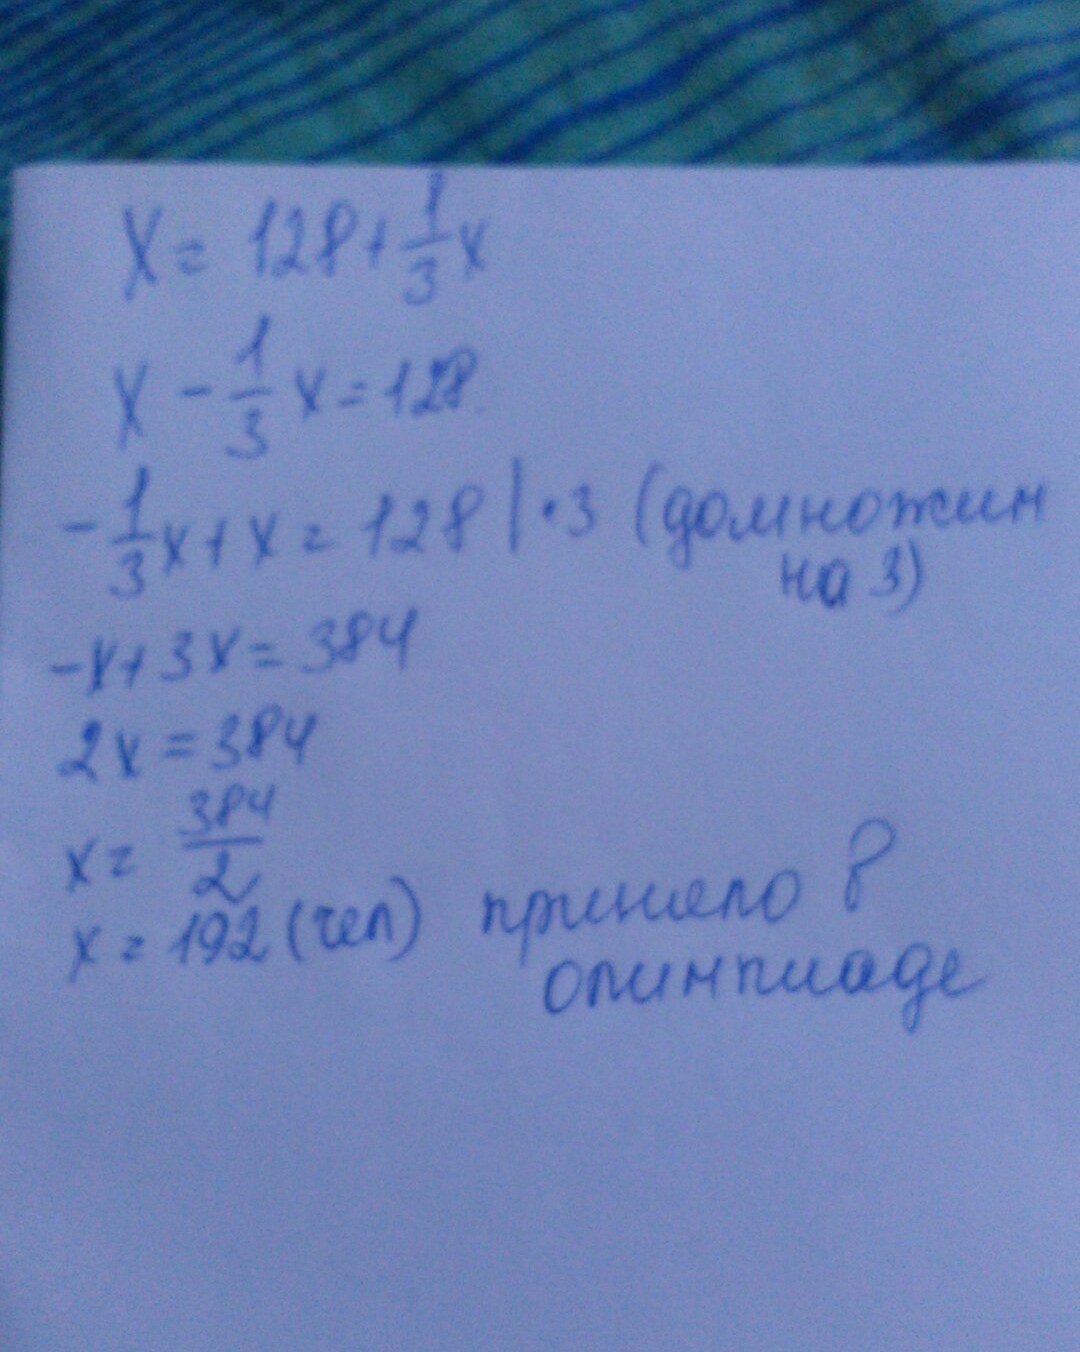 X = 128 + 1/3 x
X - 1/3 x = 128.
- 1/3 x + x = 128 | · 3 (домножим
на 3)
-x + 3x = 384
2x = 384
x = 384/2
x = 192 (чел) приняло в
олимпиаде